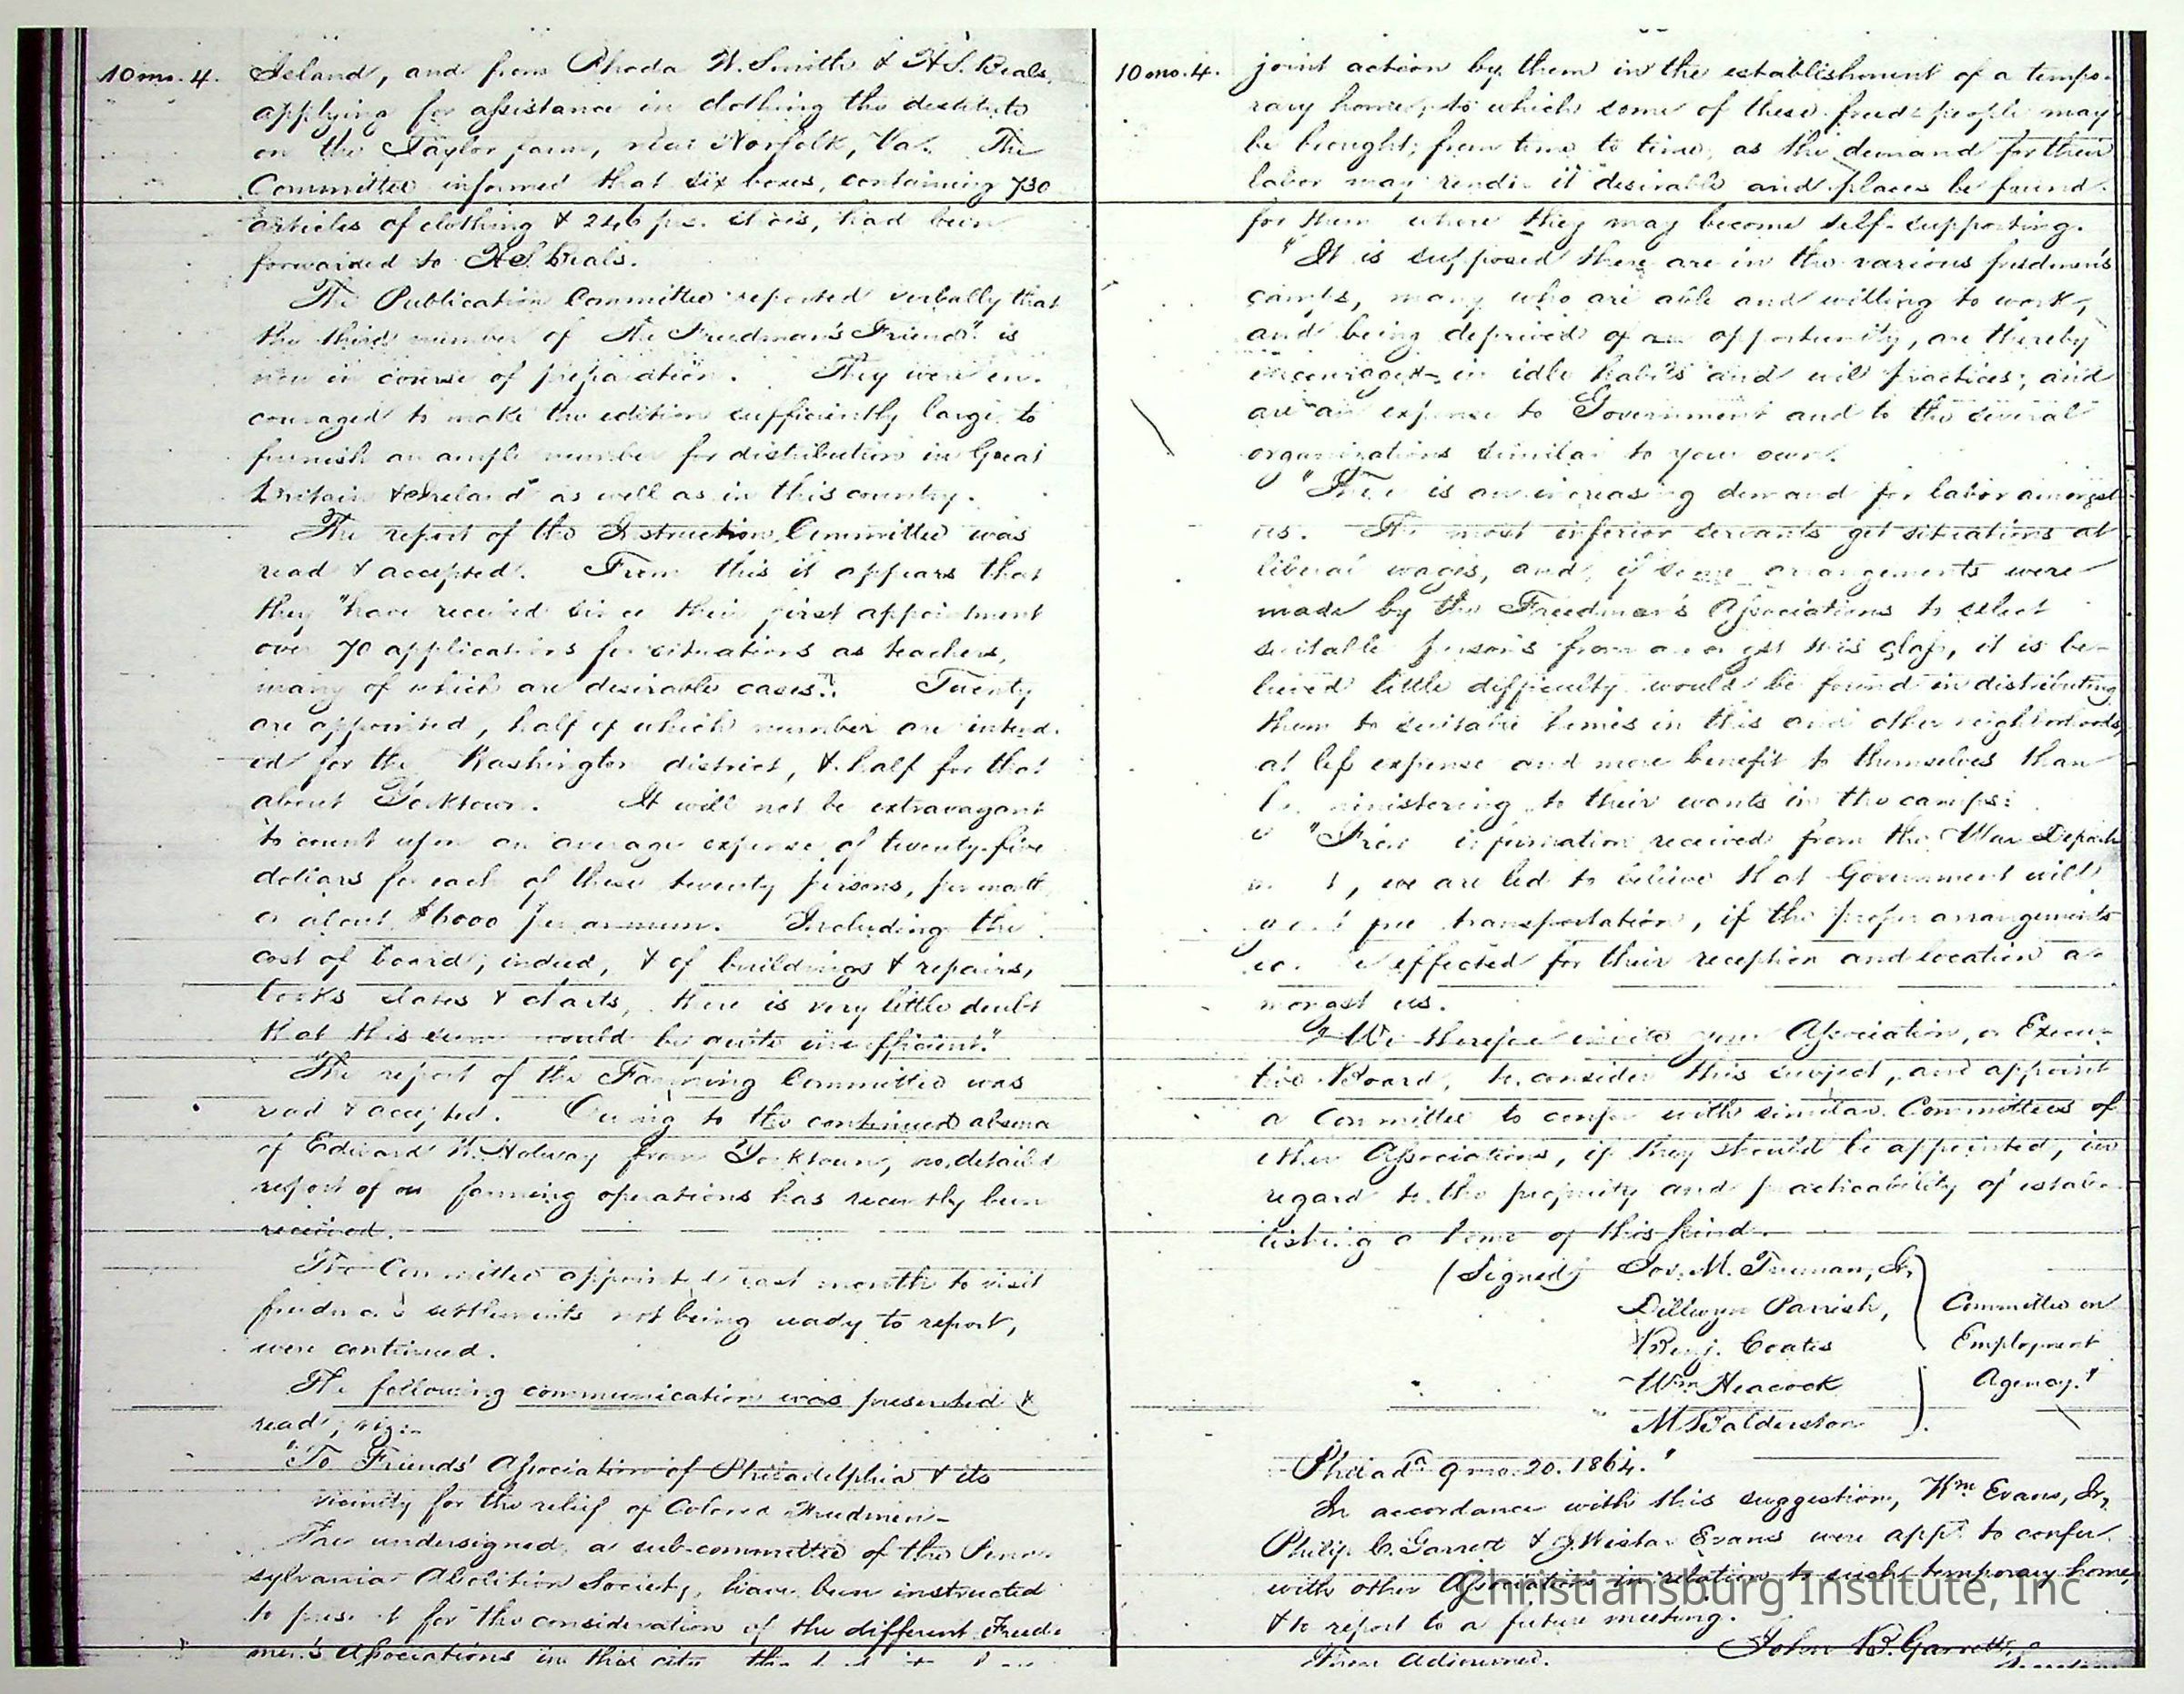 10 mo. 4.
Ireland, and from Rhoda W. Smith & H. S. Beals,
applying for assistance in clothing the destitute
on the Taylor farm, near Norfolk, Va. The
Committee informed that six boxes, containing 730
articles of clothing & 246 prs. shoes, had been
forwarded to H. S. Beals.
The Publication Committee reported verbally that
the third number of "The Freedman's Friend" is
now in course of preparation. They were en-
couraged to make the edition sufficiently large to
furnish an ample number for distribution in Great
Britain & Ireland as well as in this country.
The report of the Instruction Committee was
read & accepted. From this it appears that
they "have received since their first appointment
over 70 applications for situations as teachers,
many of which are desirable cases." Twenty
are appointed, half of which number are intend-
ed for the Washington district, & half for that
about Yorktown. It will not be extravagant
to count upon an average expense of twenty-five
dollars for each of these twenty persons, per month,
or about $6000 per annum. Including the
cost of board, indeed, & of buildings & repairs,
books slates & charts, there is very little doubt
that this sum would be quite insufficient."
The report of the Farming Committee was
read & accepted. Owing to the continued absence
of Edward W. Holway from Yorktown, no detailed
report of our farming operations has recently been
received.
The Committee appointed last month to visit
freedmen's settlements not being ready to report,
were continued.
The following communication was presented &
read; viz:-
"To Friends' Association of Philadelphia & its
vicinity for the relief of Colored Freedmen-
The undersigned, a sub-committee of the Penn-
sylvania Abolition Society, have been instructed
to present for the consideration of the different Freed-
men's Associations in this city
10 mo. 4.
joint action by them in the establishment of a tempo-
rary home, to which some of these freed people may
be brought, from time to time, as the demand for their
labor may render it desirable and places be found
for them where they may become self-supporting.
"It is supposed there are in the various freedmen's
camps, many who are able and willing to work,
and being deprived of an opportunity, are thereby
encouraged in idle habits and evil practices; and
are an expense to Government and to the several
organizations similar to your own.
"There is an increasing demand for labor amongst
us. The most inferior servants get situations at
liberal wages, and, if some arrangements were
made by the Freedmen's Associations to select
suitable persons from amongst this class, it is be-
lieved little difficulty would be found in distributing
them to suitable homes in this and other neighborhoods,
at less expense and more benefit to themselves than
by ministering to their wants in the camps:
"From information received from the War Depart-
ment, we are led to believe that Government will
grant free transportation, if the proper arrangements
can be effected for their reception and location a-
mongst us.
"We therefore invite your Association, or Execu-
tive Board, to consider this subject, and appoint
a Committee to confer with similar Committees of
other Associations, if they should be appointed, in
regard to the propriety and practicability of estab-
lishing a home of this kind.
(Signed) Jos. M. Truman, Jr,
Dillwyn Parrish, Committee on
Benj. Coates Employment
Wm Heacock Agency."
M Balderston
Philada 9 mo. 20. 1864."
In accordance with this suggestion, Wm Evans, Jr,
Philip C. Garrett & J. Wistar Evans were appd to confer
with other Associations in relation to such temporary home,
& to report to a future meeting.
Then Adjourned. John B. Garrett,
Christiansburg Institute, Inc